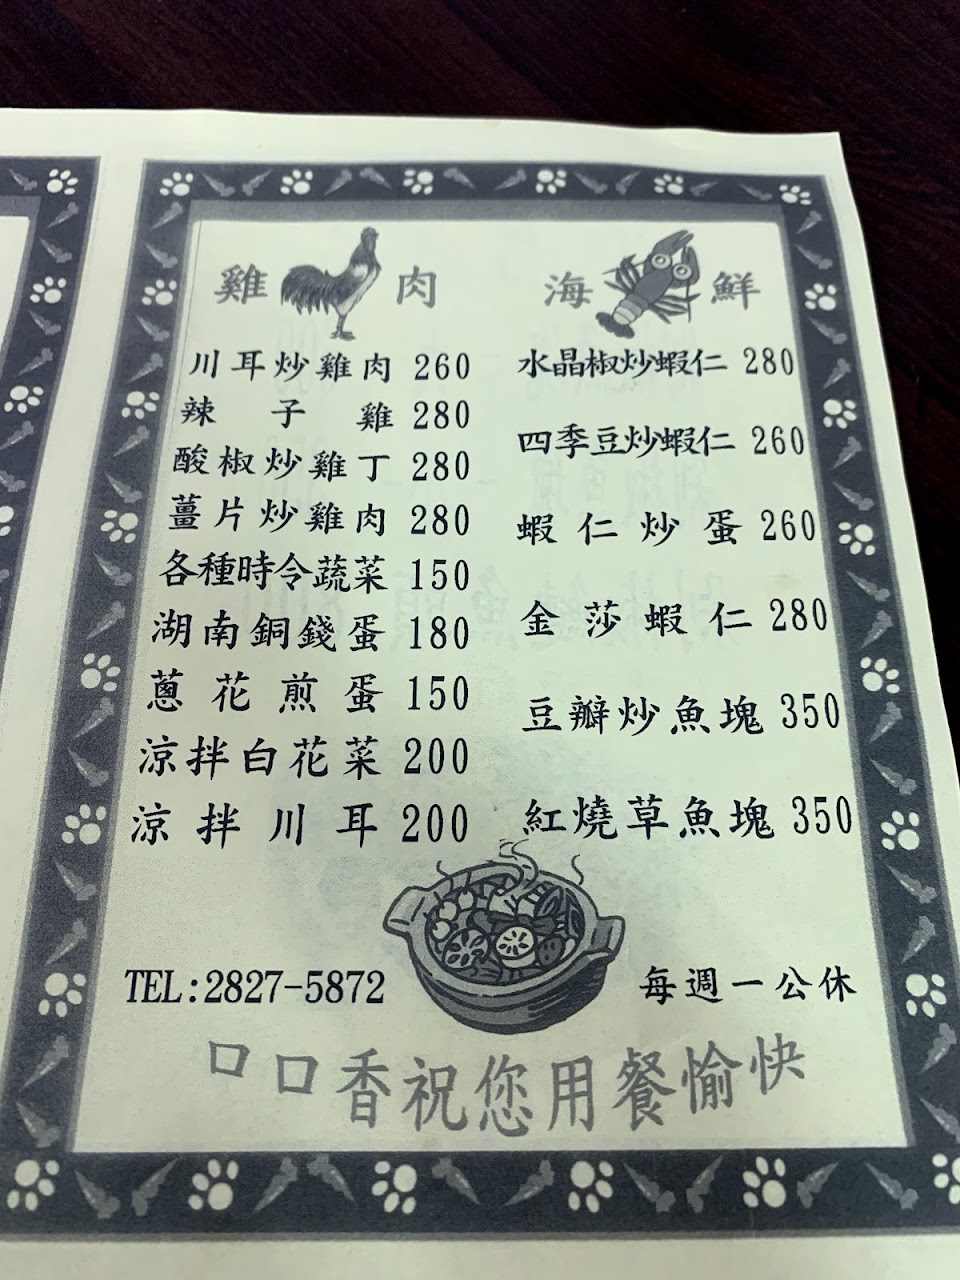 雞肉
川耳炒雞肉 260
辣子雞 280
酸椒炒雞丁 280
薑片炒雞肉 280
各種時令蔬菜 150
湖南銅錢蛋 180
蔥花煎蛋 150
涼拌白花菜 200
涼拌川耳 200
海鮮
水晶椒炒蝦仁 280
四季豆炒蝦仁 260
蝦仁炒蛋 260
金莎蝦仁 280
豆瓣炒魚塊 350
紅燒草魚塊 350
TEL:2827-5872
每週一公休
口口香祝您用餐愉快